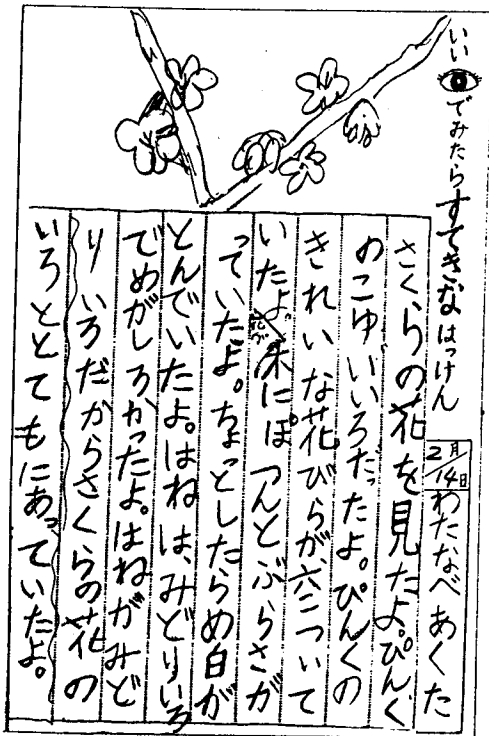 いい でみたらすてきなはっけん
2月14日
わたなべ あくた
さくらの花を見たよ。ぴんく
のこゆいいろだったよ。ぴんくの
きれいな花びらが六こついて
いたよ。花が木にぽつんとぶらさが
っていたよ。ちょっとしたらめ白が
とんでいたよ。はねは、みどりいろ
でめがしろかったよ。はねがみど
りいろだからさくらの花の
いろととてもにあっていたよ。